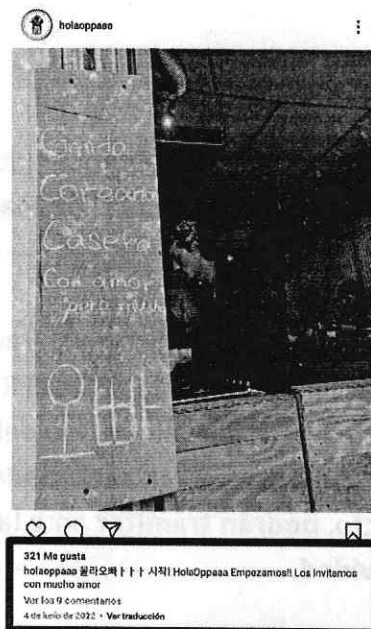 holaoppaaa
Comida
Coreana
Casera
Con amor
pero mucho
오빠
321 Me gusta
holaoppaaa 올라오빠ㅏㅏㅏ 시작! HolaOppaaa Empezamos!! Los invitamos
con mucho amor
Ver los 9 comentarios
4 de junio de 2022 • Ver traducción